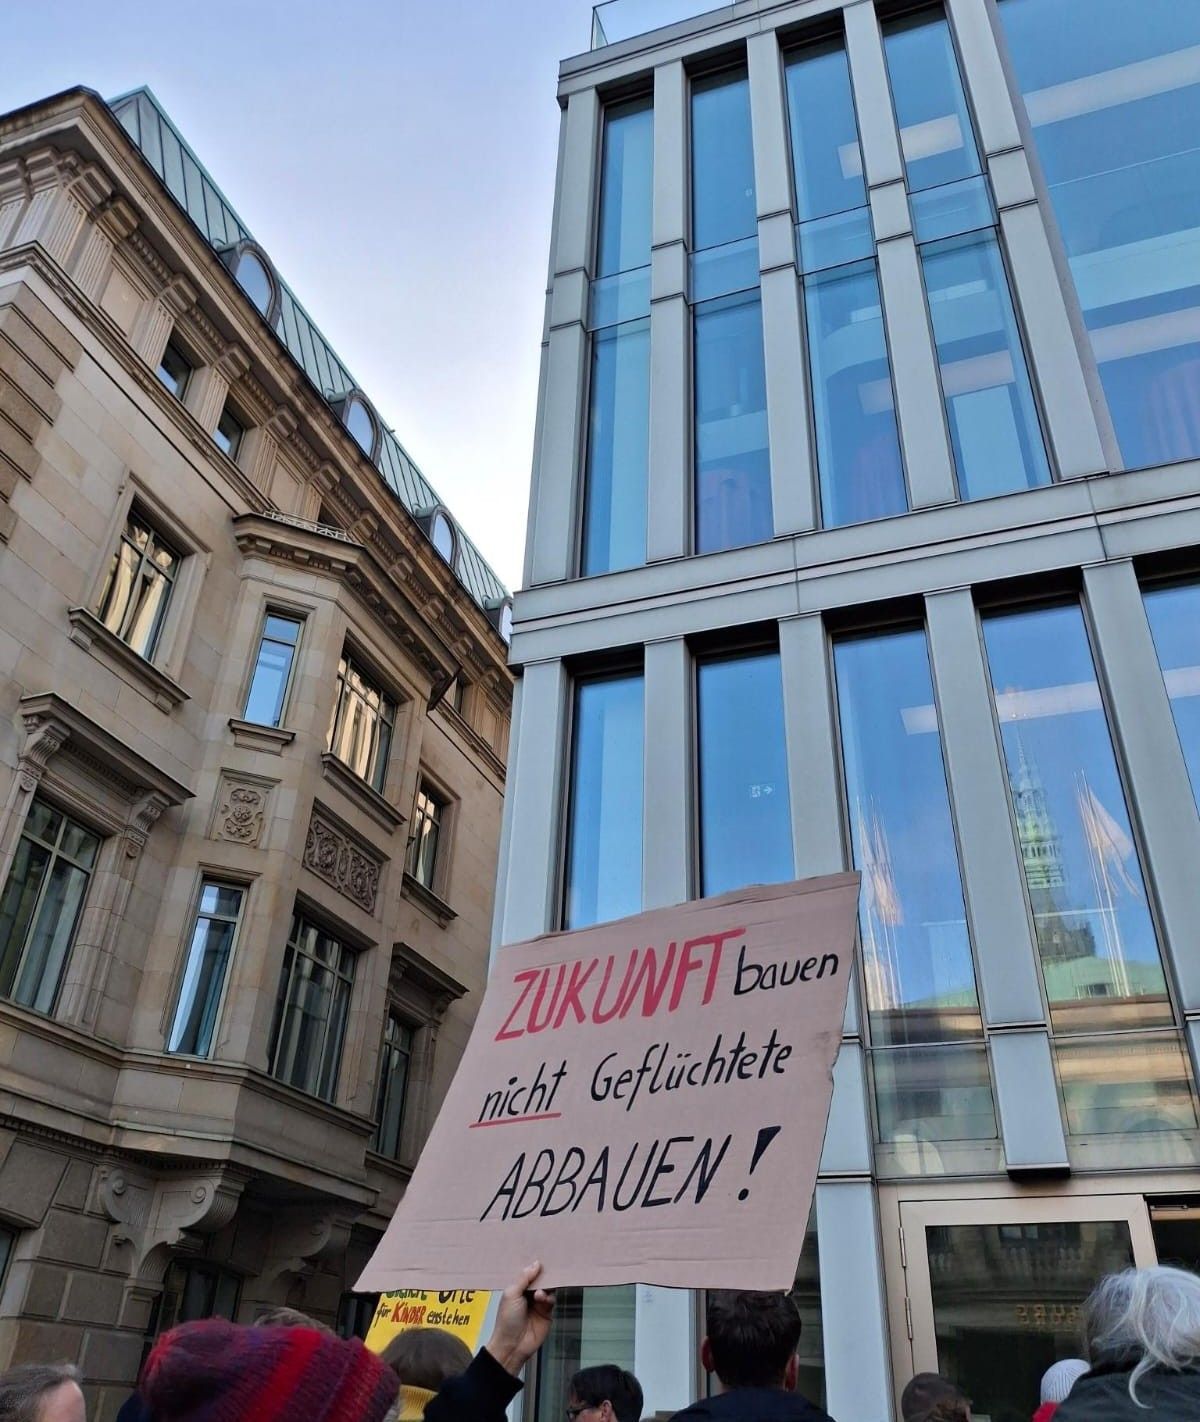 ZUKUNFT bauen
nicht Geflüchtete
ABBAUEN!
für KINDER enstehen